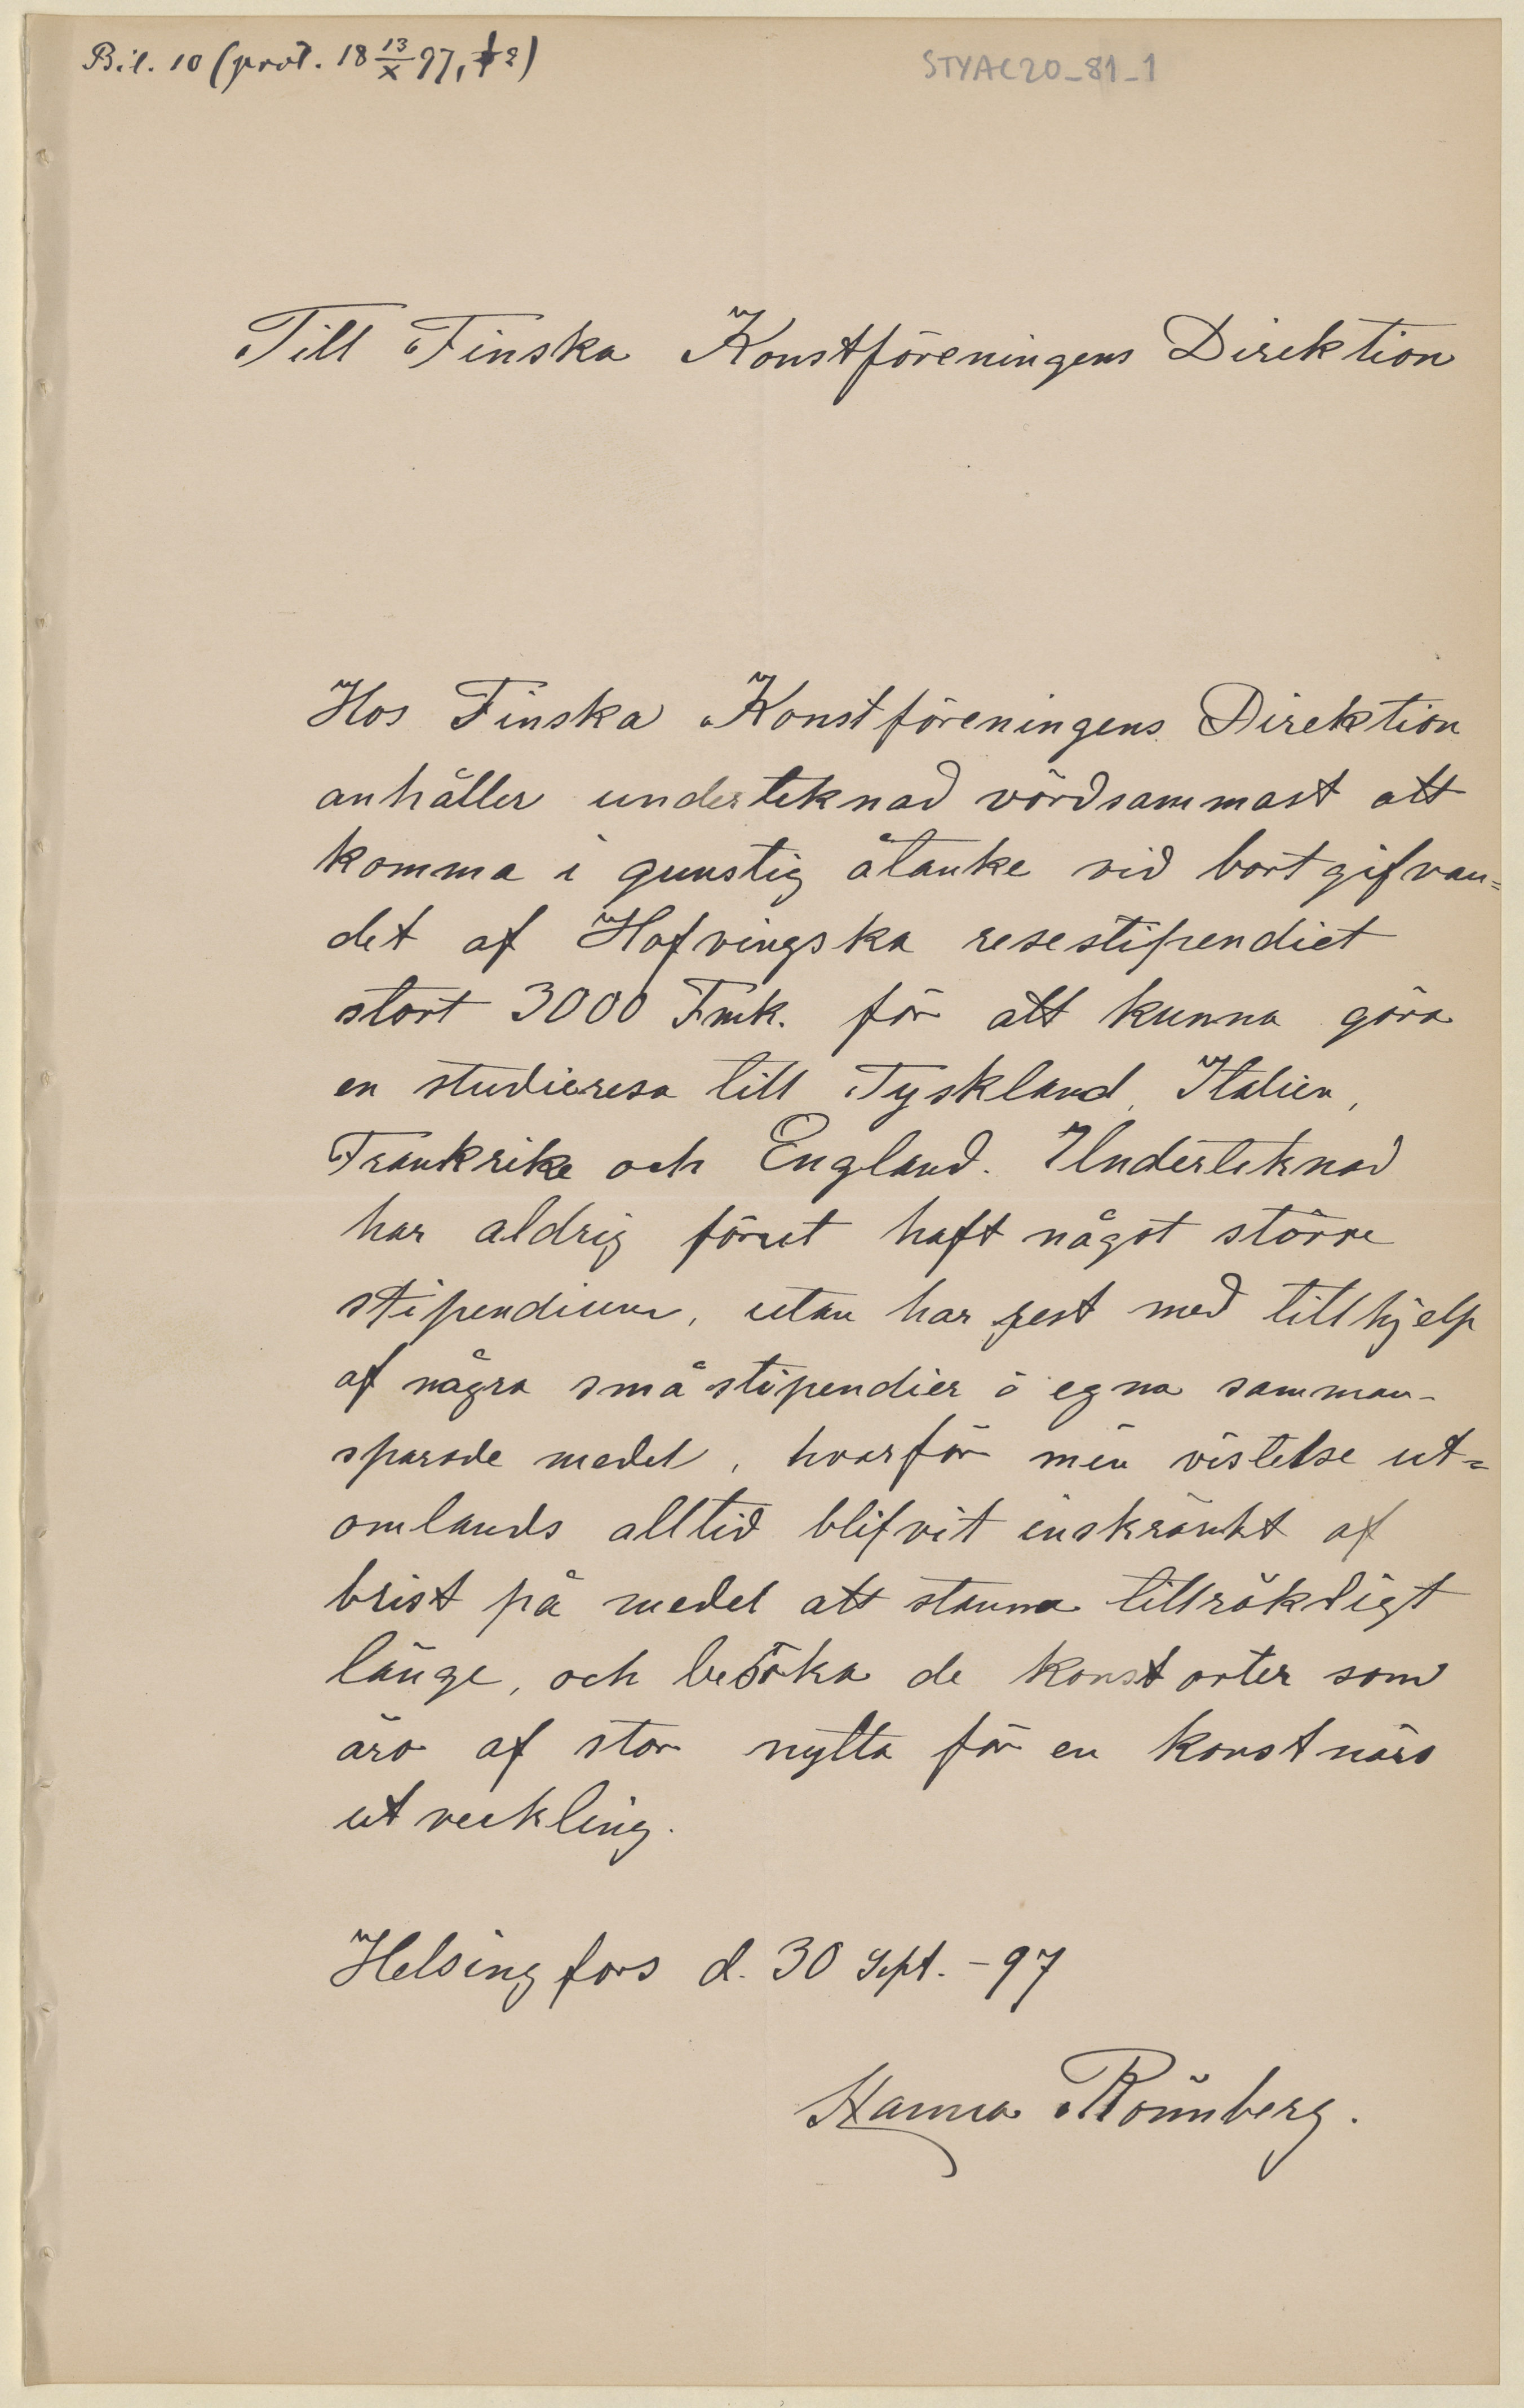 Bil. 10 (prot. 18 13/X 97, § 2)
STYAC20_81_1
Till Finska Konstföreningens Direktion
Hos Finska Konstföreningens Direktion
anhåller underteknad vördsammast att
komma i gunstig åtanke vid bortgifvan=
det af Hofvingska resestipendiet
stort 3000 Fmk. för att kunna göra
en studieresa till Tyskland, Italien,
Frankrike och England. Underteknad
har aldrig förut haft något större
stipendium, utan har rest med tillhjelp
af några små stipendier o egna samman-
sparade medel, hvarför min vistelse ut=
omlands alltid blifvit inskränkt af
brist på medel att stanna tillräkligt
länge, och besöka de konstorter som
äro af stor nytta för en konstnärs
utveckling.
Helsingfors d. 30 Sept. -97
Hanna Rönnberg.